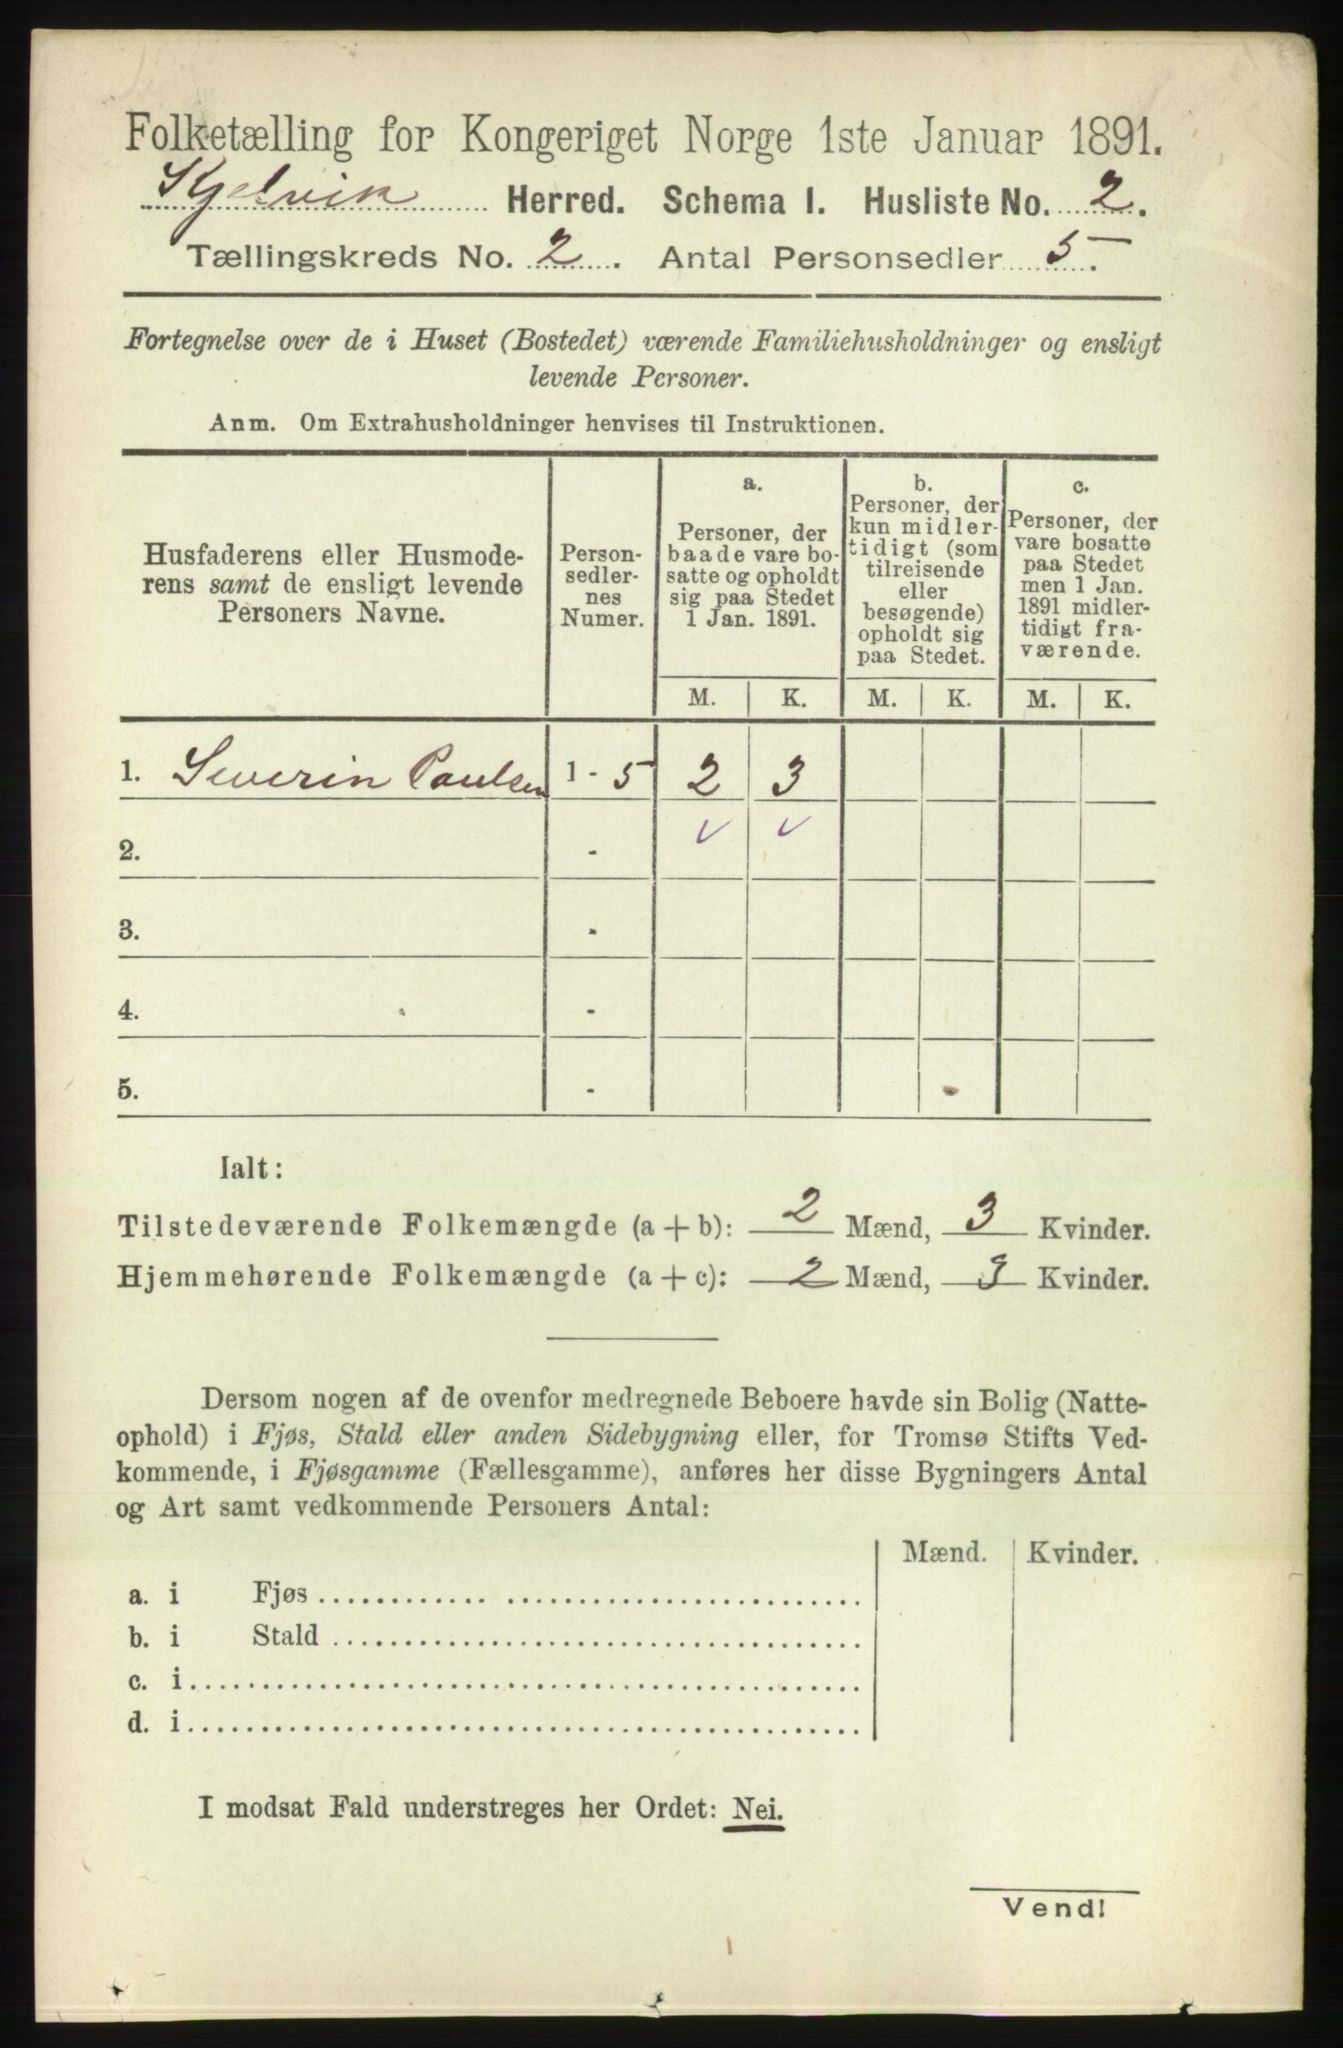 Folketælling for Kongeriget Norge 1ste Januar 1891.
Kjelvik Herred. Schema I. Husliste No. 2.
Tællingskreds No. 2. Antal Personsedler 5.
Fortegnelse over de i Huset (Bostedet) værende Familiehusholdninger og ensligt
levende Personer.
Anm. Om Extrahusholdninger henvises til Instruktionen.
Husfaderens eller Husmode-
rens samt de ensligt levende
Personers Navne.
Person-
sedler-
nes
Numer.
a.
Personer, der
baade vare bo-
satte og opholdt
sig paa Stedet
1 Jan. 1891.
b.
Personer, der
kun midler-
tidigt (som
tilreisende
eller
besøgende)
opholdt sig
paa Stedet.
c.
Personer, der
vare bosatte
paa Stedet
men 1 Jan.
1891 midler-
tidigt fra-
værende.
M. K. M. K. M. K.
1. Severin Paulsen 1 - 5 2 3
2. -
3. -
4. -
5. -
Ialt:
Tilstedeværende Folkemængde (a + b): 2 Mænd, 3 Kvinder.
Hjemmehørende Folkemængde (a + c): 2 Mænd, 3 Kvinder.
Dersom nogen af de ovenfor medregnede Beboere havde sin Bolig (Natte-
ophold) i Fjøs, Stald eller anden Sidebygning eller, for Tromsø Stifts Ved-
kommende, i Fjøsgamme (Fællesgamme), anføres her disse Bygningers Antal
og Art samt vedkommende Personers Antal:
Mænd. Kvinder.
a. i Fjøs
b. i Stald
c. i
d. i
I modsat Fald understreges her Ordet: Nei.
Vend!